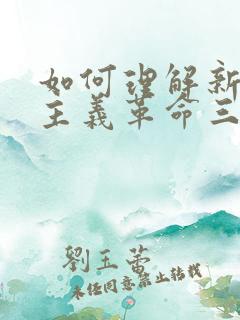 如何理解新
主義革命三
劉玉蕾
未經同意禁止轉載